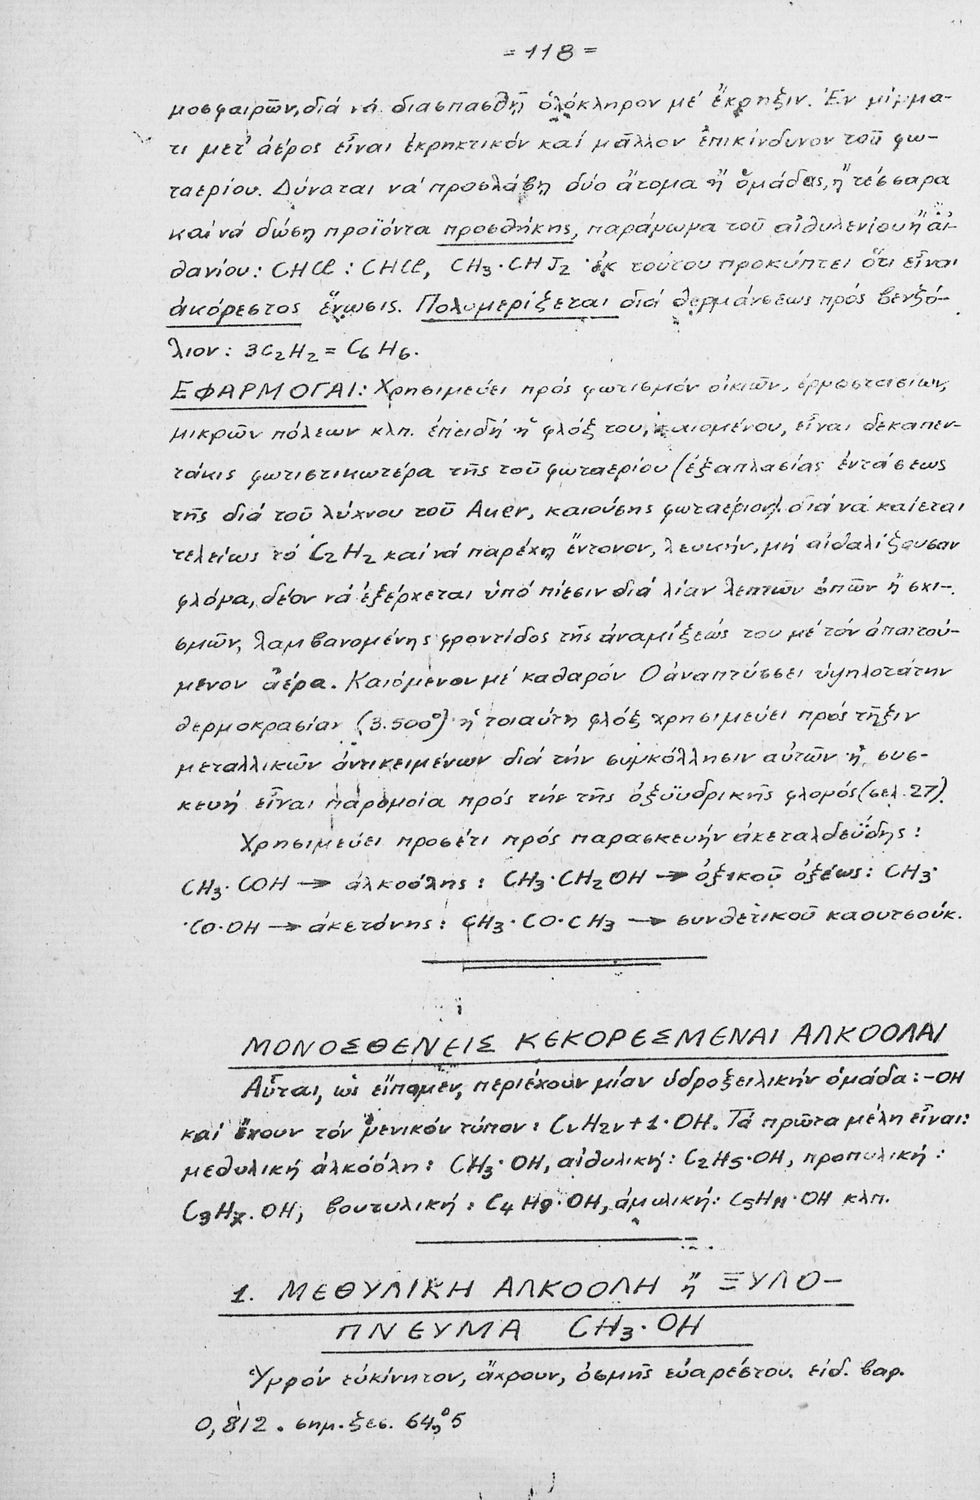 = 118 =
μοσφαιρῶν, διά νά διασπασθῇ ὁλόκληρον μέ ἔκρηξιν. Ἐν μίγμα-
τι μετ' ἀέρος εἶναι ἐκρηκτικόν καί μᾶλλον ἐπικίνδυνον τοῦ φω-
ταερίου. Δύναται νά προσλάβῃ δύο ἄτομα ἤ ὁμάδας, ἤ τέσσαρα
καί νά δώσῃ προϊόντα προσθήκης, παράγωγα τοῦ αἰθυλενίου ἤ αἰ-
θανίου: CHCl : CHCl, CH₃·CHJ₂ · ἐκ τούτου προκύπτει ὅτι εἶναι
ἀκόρεστος ἕνωσις. Πολυμερίζεται διά θερμάνσεως πρός βενζό-
λιον: 3C₂H₂ = C₆H₆.
ΕΦΑΡΜΟΓΑΙ: Χρησιμεύει πρός φωτισμόν οἰκιῶν, ἐργοστασίων,
μικρῶν πόλεων κλπ. ἐπειδή ἡ φλόξ του, καιομένου, εἶναι δεκαπεν-
τάκις φωτιστικωτέρα τῆς τοῦ φωταερίου (ἑξαπλασίας ἐντάσεως
τῆς διά τοῦ λύχνου τοῦ Auer, καιούσης φωταέριον). διά νά καίεται
τελείως τό C₂H₂ καί νά παρέχῃ ἔντονον, λευκήν, μή αἰθαλίζουσαν
φλόγα, δέον νά ἐξέρχεται ὑπό πίεσιν διά λίαν λεπτῶν ὀπῶν ἤ σχι-
σμῶν, λαμβανομένης φροντίδος τῆς ἀναμίξεώς του μέ τόν ἀπαιτού-
μενον ἀέρα. Καιόμενον μέ καθαρόν O ἀναπτύσσει ὑψηλοτάτην
θερμοκρασίαν (3.500°) · ἡ τοιαύτη φλόξ χρησιμεύει πρός τῆξιν
μεταλλικῶν ἀντικειμένων διά τήν συγκόλλησιν αὐτῶν · ἡ συσ-
κευή εἶναι παρομοία πρός τήν τῆς ὀξυϋδρικῆς φλογός (σελ. 27).
Χρησιμεύει προσέτι πρός παρασκευήν ἀκεταλδεΰδης:
CH₃·COH → ἀλκοόλης: CH₃·CH₂OH → ὀξικοῦ ὀξέως: CH₃·
·CO·OH → ἀκετόνης: CH₃·CO·CH₃ → συνθετικοῦ καουτσούκ.
ΜΟΝΟΣΘΕΝΕΙΣ ΚΕΚΟΡΕΣΜΕΝΑΙ ΑΛΚΟΟΛΑΙ
Αὗται, ὡς εἴπομεν, περιέχουν μίαν ὑδροξειλικήν ὁμάδα: -OH
καί ἔχουν τόν γενικόν τύπον: CνH₂ν+1·OH. Τά πρῶτα μέλη εἶναι:
μεθυλική ἀλκοόλη: CH₃·OH, αἰθυλική: C₂H₅·OH, προπυλική:
C₃H₇·OH, βουτυλική: C₄H₉·OH, ἀμυλική: C₅H₁₁·OH κλπ.
1. ΜΕΘΥΛΙΚΗ ΑΛΚΟΟΛΗ ἤ ΞΥΛΟ-
ΠΝΕΥΜΑ CH₃·OH
Ὑγρόν εὐκίνητον, ἄχρουν, ὀσμῆς εὐαρέστου. εἰδ. βαρ.
0,812. σημ. ζεσ. 64,°5